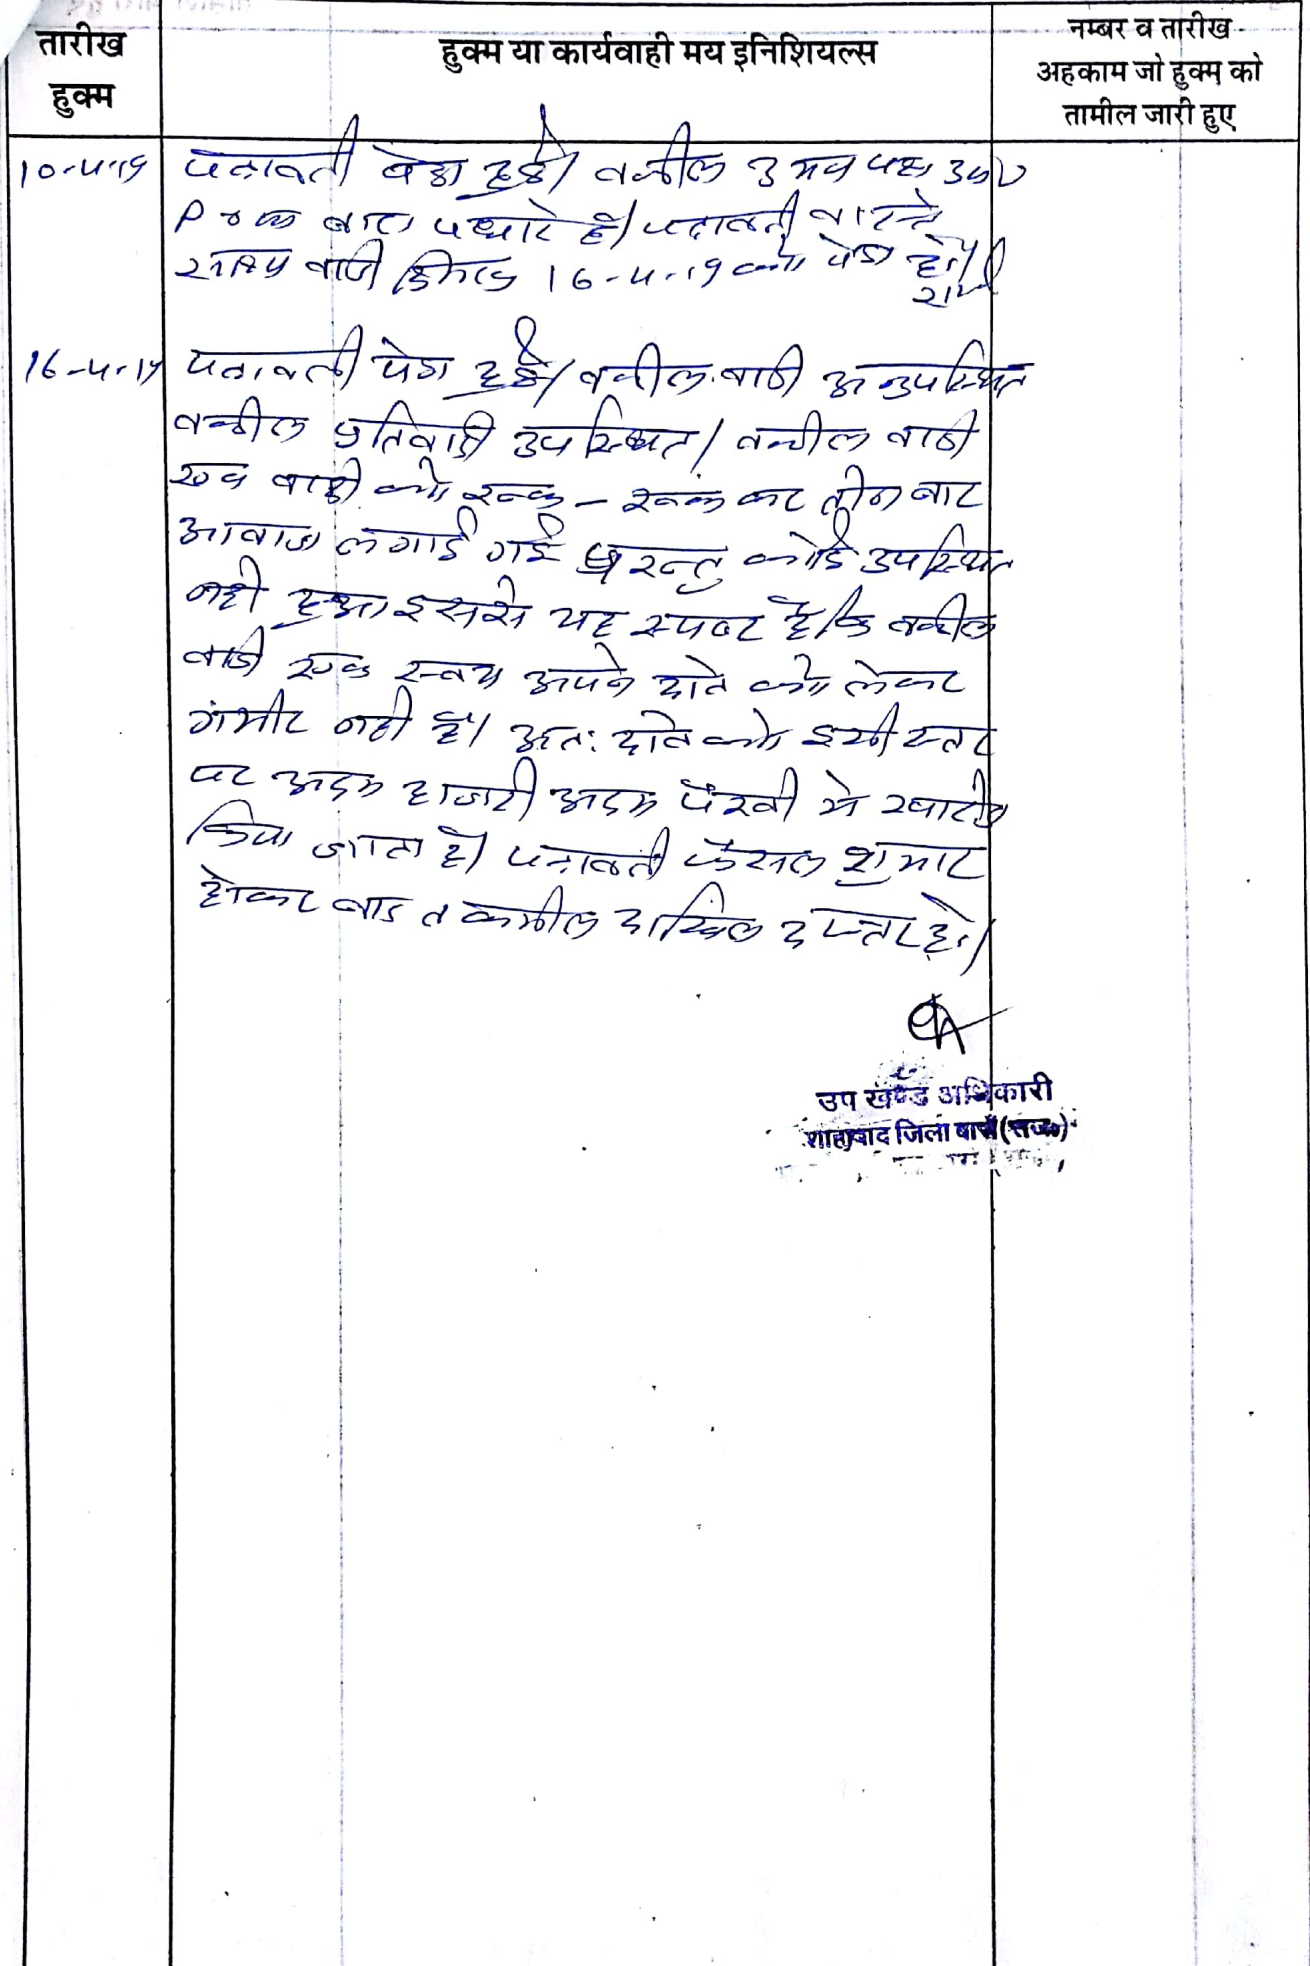 तारीख
हुक्म
हुक्म या कार्यवाही मय इनिशियल्स
नम्बर व तारीख
अहकाम जो हुक्म को
तामील जारी हुए
10-4-19 पत्रावली पेश हुई। वकील उभय पक्ष उप०
P.O. बाहर पधारे है। पत्रावली वास्ते
साक्ष्य वादी दिनांक 16-4-19 को पेश हो।
16-4-19 पत्रावली पेश हुई। वकील वादी अनुपस्थित
वकील प्रतिवादी उपस्थित। वकील वादी
एवं वादी को रूक-रूक कर तीन बार
आवाज लगाई गई परन्तु कोई उपस्थित
नही हुआ इससे यह स्पष्ट है कि वकील
वादी एवं स्वयं अपने दावे को लेकर
गंभीर नही है। अत: दावे को इसी स्तर
पर अदम हाजरी अदम पैरवी मे खारीज
किया जाता है। पत्रावली फैसल शुमार
होकर बाद तकमील दाखिल दफ्तर हो।
उप खण्ड अधिकारी
शाहाबाद जिला बारां (राज०)